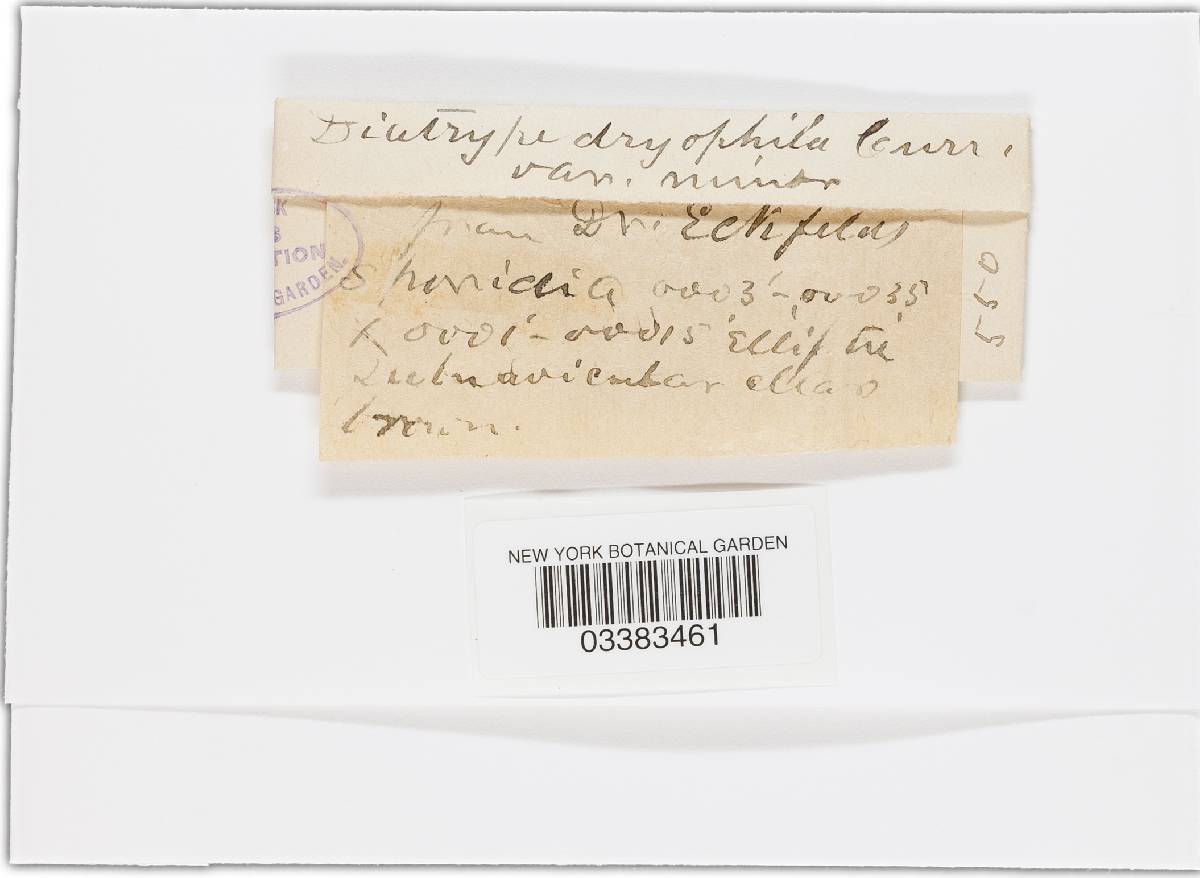 Diatrype dryophila Curr.
var. minor
from Dr. Eckfeldt
Sporridia .0003'-.00035
X .0001'-.00015' Elliptic
Subnavicular clear
brown.
550
TION
GARDEN.
NEW YORK BOTANICAL GARDEN
03383461